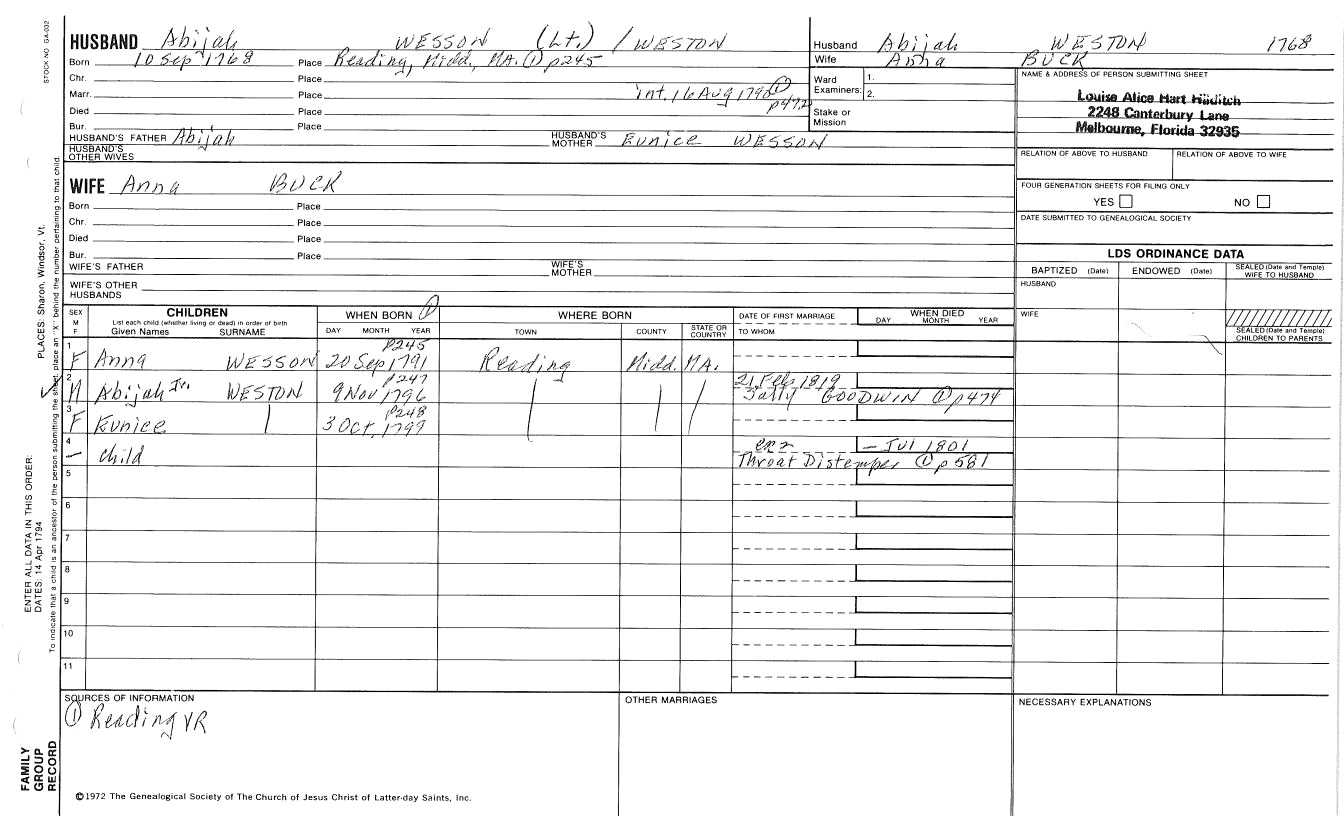 STOCK NO. GA-032
HUSBAND Abijah WESSON (Lt.) / WESTON
Born 10 Sep 1768 Place Reading, Midd., MA. ① p245
Chr. Place
Marr. Place int. 16 Aug 1790 ① p472
Died Place
Bur. Place
HUSBAND'S FATHER Abijah HUSBAND'S MOTHER Eunice WESSON
HUSBAND'S OTHER WIVES
WIFE Anna BUCK
Born Place
Chr. Place
Died Place
Bur. Place
WIFE'S FATHER WIFE'S MOTHER
WIFE'S OTHER HUSBANDS
Husband Abijah WESTON 1768
Wife Anna BUCK
Ward Examiners: 1. 2.
Stake or Mission
NAME & ADDRESS OF PERSON SUBMITTING SHEET
Louise Alice Hart
2248 Canterbury Lane
Melbourne, Florida 32935
RELATION OF ABOVE TO HUSBAND RELATION OF ABOVE TO WIFE
FOUR GENERATION SHEETS FOR FILING ONLY
YES NO
DATE SUBMITTED TO GENEALOGICAL SOCIETY
LDS ORDINANCE DATA
BAPTIZED (Date) ENDOWED (Date) SEALED (Date and Temple) WIFE TO HUSBAND
HUSBAND
WIFE
SEALED (Date and Temple) CHILDREN TO PARENTS
SEX M F CHILDREN WHEN BORN ① WHERE BORN DATE OF FIRST MARRIAGE WHEN DIED
List each child (whether living or dead) in order of birth
Given Names SURNAME DAY MONTH YEAR TOWN COUNTY STATE OR COUNTRY TO WHOM DAY MONTH YEAR
p245
1 F Anna WESSON 20 Sep 1791 Reading Midd. MA.
p247 21 Feb 1819
2 M Abijah Jr. WESTON 9 Nov 1796 Sally GOODWIN ① p474
p248
3 F Eunice 3 Oct. 1799
4 – child – Jul 1801
Throat Distemper ① p581
5
6
7
8
9
10
11
SOURCES OF INFORMATION
① Reading VR
OTHER MARRIAGES
NECESSARY EXPLANATIONS
©1972 The Genealogical Society of The Church of Jesus Christ of Latter-day Saints, Inc.
FAMILY GROUP RECORD
ENTER ALL DATA IN THIS ORDER:
DATES: 14 Apr 1794
PLACES: Sharon, Windsor, Vt.
To indicate that a child is an ancestor of the person submitting the sheet, place an "X" behind the number pertaining to that child.